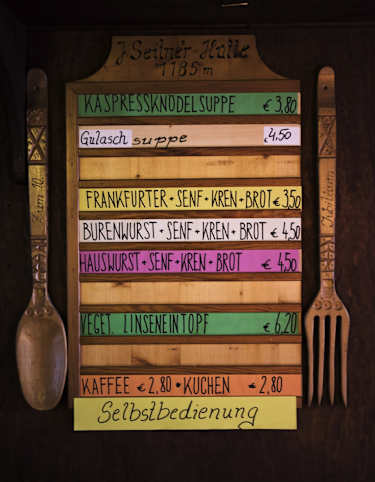 J. Seitner-Hütte
1185m
KASPRESSKNÖDELSUPPE € 3,80
Gulaschsuppe 4,50
FRANKFURTER + SENF + KREN + BROT € 3,50
BURENWURST + SENF + KREN + BROT € 4,50
HAUSWURST + SENF + KREN + BROT € 4,50
VEGET. LINSENEINTOPF € 6,20
KAFFEE € 2,80 • KUCHEN € 2,80
Selbstbedienung